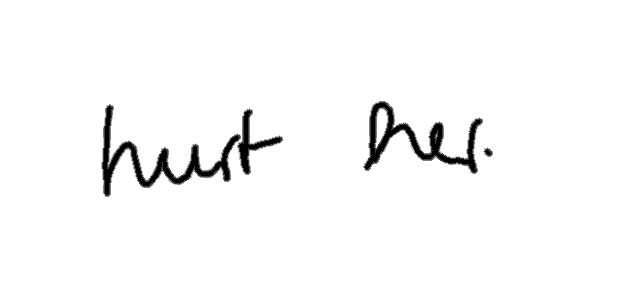 hurt her.